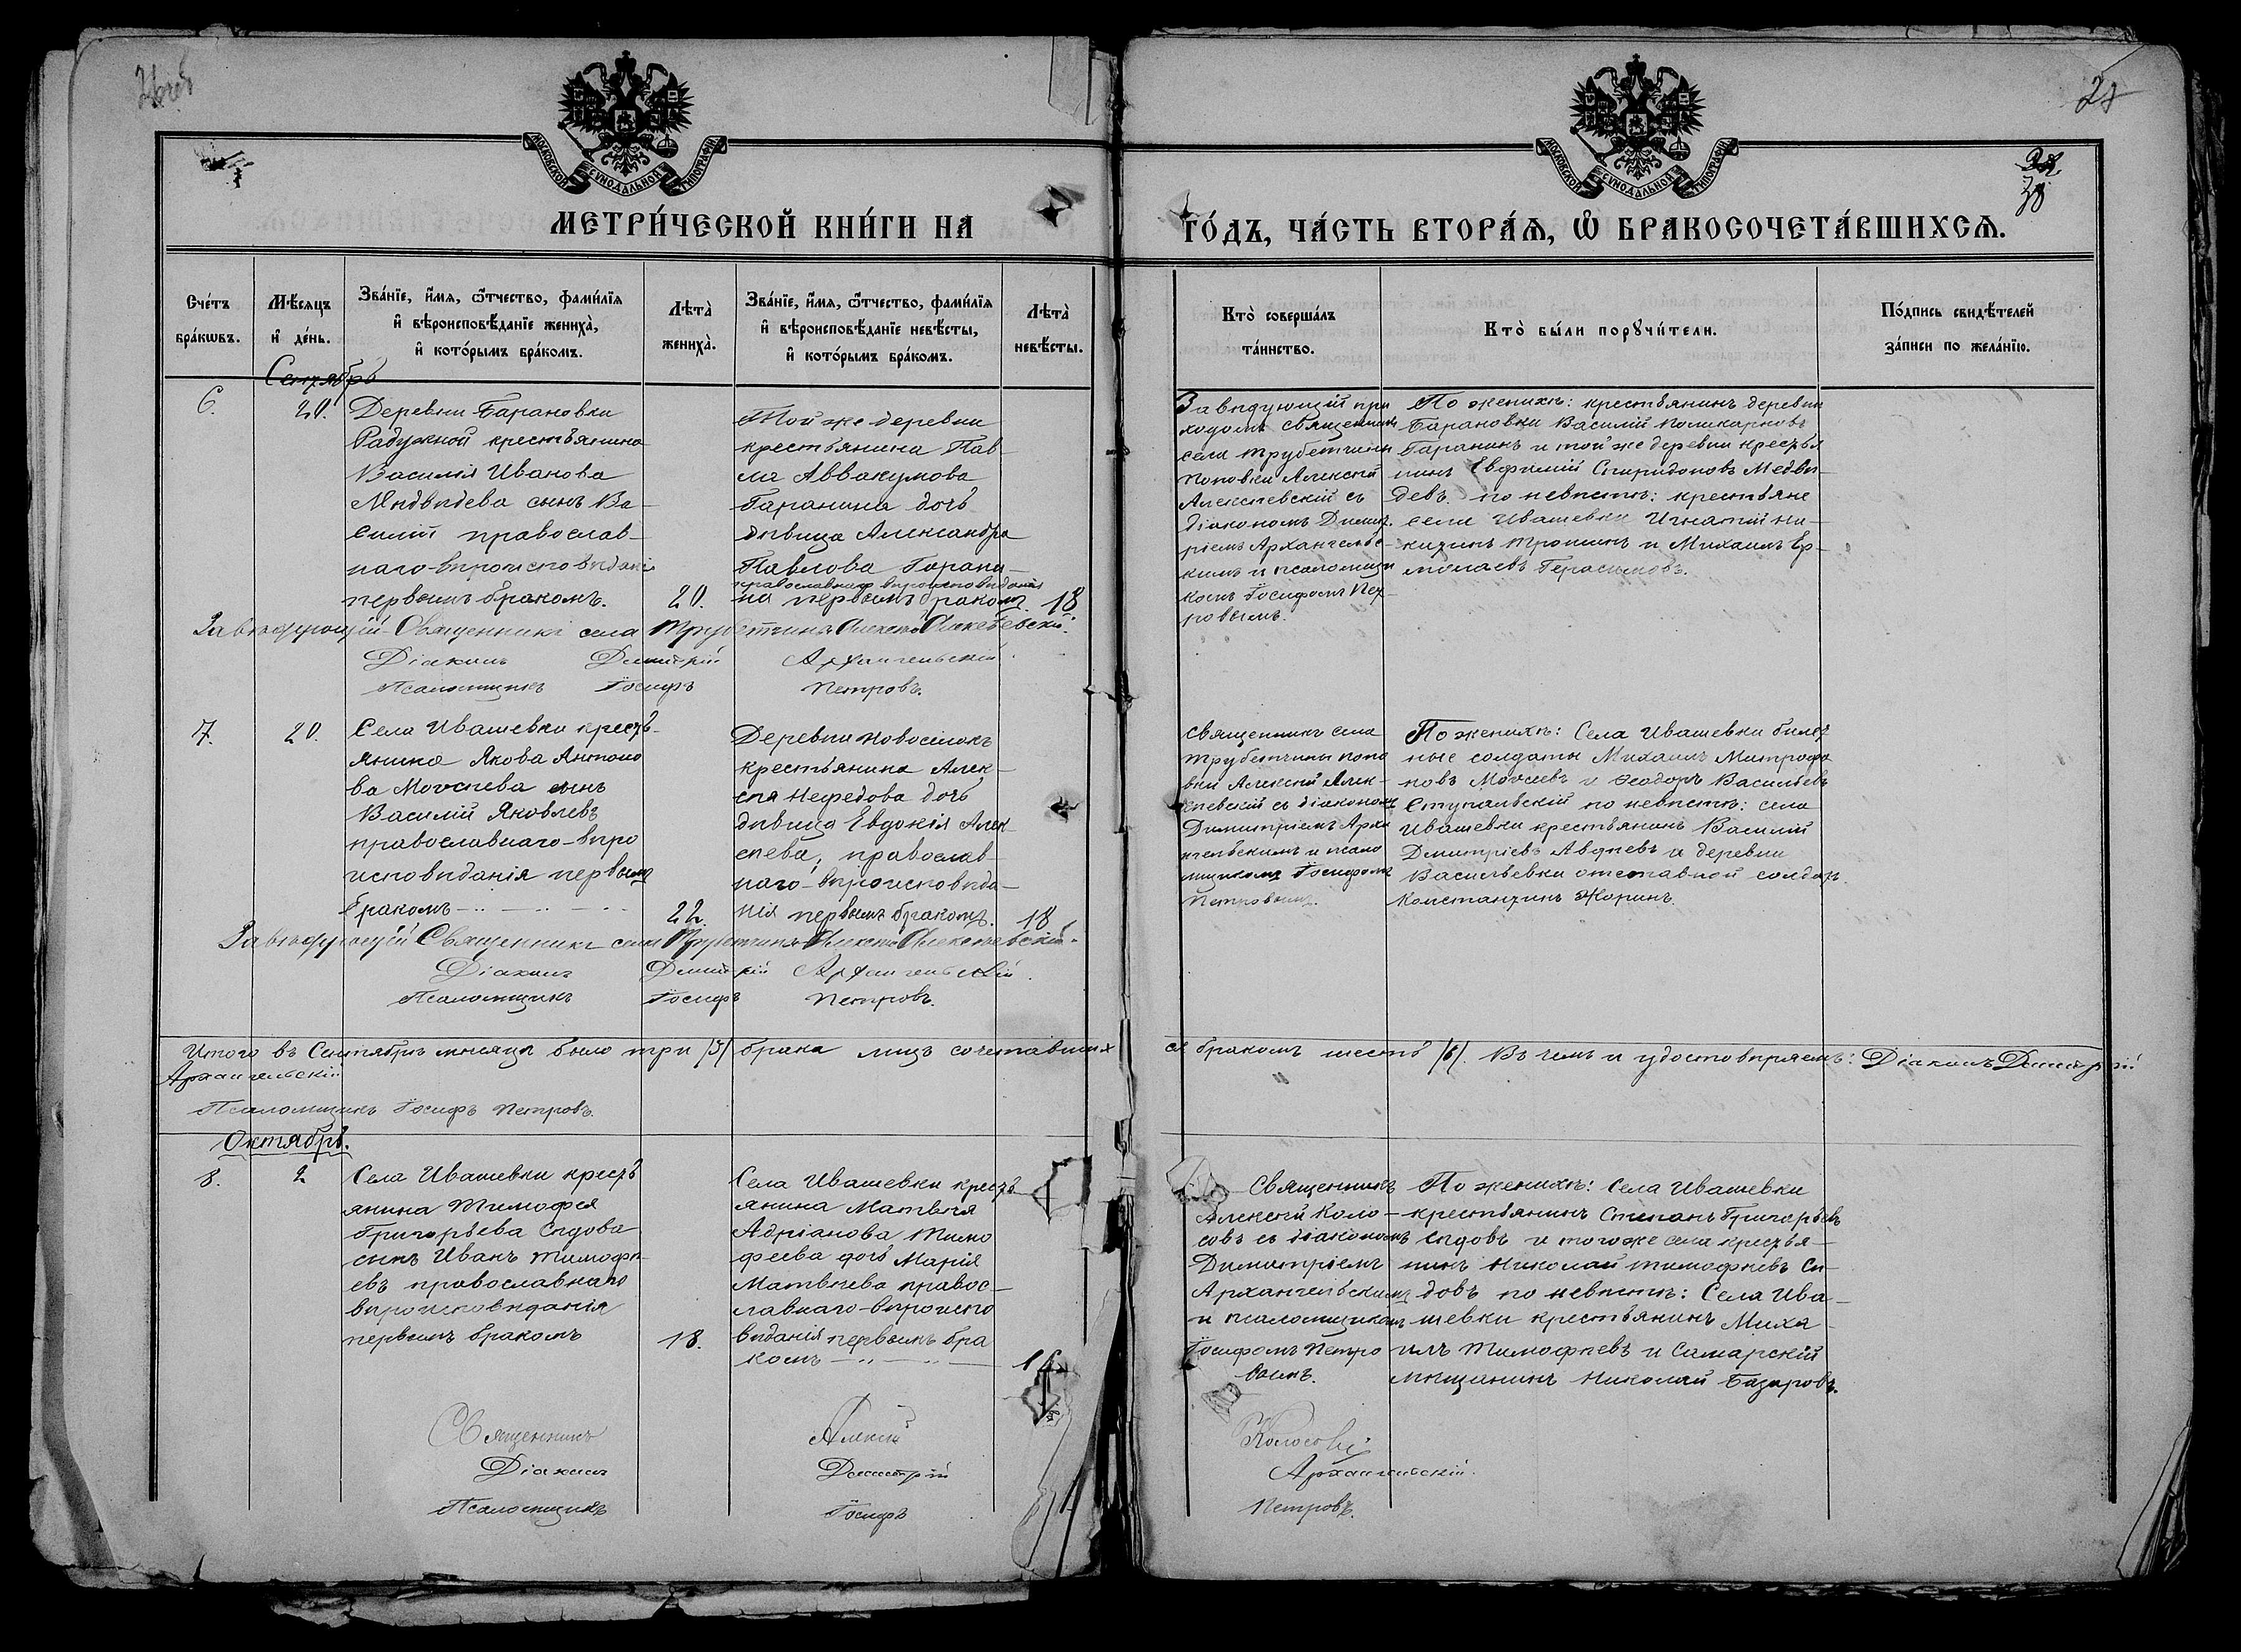 28
МОСКОВСКОЙ СѴНОДАЛЬНОЙ ТИПОГРАФІИ
МОСКОВСКОЙ СѴНОДАЛЬНОЙ ТИПОГРАФІИ
МЕТРИ́ЧЕСКОЙ КНИ́ГИ НА
ГО́ДЪ, ЧА́СТЬ ВТОРА́Ѧ, Ѡ҆ БРАКОСОЧЕТА́ВШИХСѦ.
Сче́тъ
бра́кѡвъ.
Мѣ́сѧцъ
и҆ де́нь.
Зва́нїе, и҆́мѧ, ѻ҆́тчество, фами́лїѧ
и҆ вѣроисповѣ́данїе жениха̀,
и҆ кото́рымъ бра́комъ.
Лѣта̀
жениха̀.
Зва́нїе, и҆́мѧ, ѻ҆́тчество, фами́лїѧ
и҆ вѣроисповѣ́данїе невѣ́сты,
и҆ кото́рымъ бра́комъ.
Лѣта̀
невѣ́сты.
Кто̀ соверша́лъ
та́инство.
Кто̀ бы́ли порꙋчи́тели.
По́дпись свидѣ́телей
за́писи по жела́нїю.
Сентябрь
6.
20.
Деревни Барановки
Радужной крестьянина
Василія Иванова
Медвѣдева сынъ Ва-
силій православ-
наго-вѣроисповѣданія
первымъ бракомъ.
20.
Той же деревни
крестьянина Пав-
ла Аввакумова
Гаранина дочь
дѣвица Александра
Павлова Гарани-
православнаго вѣроисповѣданія
на первымъ бракомъ.
18
Завѣдующій при
ходомъ священникъ
села Трубетчины
Поповки Алексѣй
Алексѣевскій съ
діакономъ Димит-
ріемъ Архангельс-
кимъ и псаломщи
комъ Іосифомъ Пет-
ровымъ.
По женихѣ: крестьянинъ деревни
Барановки Василій Поликарповъ
Гаранинъ и той же деревни кресть-
нинъ Евфимій Спиридоновъ Медвѣ-
девъ. по невѣстѣ: крестьяне
села Ивашевки Игнатій Ни-
китинъ Трошинъ и Михаилъ Ер-
молаевъ Герасимовъ.
Завѣдующій Священникъ села Трубетчина Алексѣй Алексѣевскій.
Діаконъ Димитрій Архангельскій.
Псаломщикъ Іосифъ Петровъ.
7.
20.
Села Ивашевки кресть-
янина Якова Антоно
ва Моѵсеева сынъ
Василій Яковлевъ
православнаго-вѣро
исповѣданія первымъ
бракомъ
22.
Деревни Новосёлокъ
крестьянина Алек-
сѣя Нефедова дочь
дѣвица Евдокія Алек-
сѣева, православ-
наго-вѣроисповѣда-
нія первымъ бракомъ.
18
священникъ села
Трубетчины Попо
вки Алексѣй Алек-
сѣевскій съ діакономъ
Димитріемъ Арха
нгельскимъ и псало
мщикомъ Іосифомъ
Петровымъ.
По женихѣ: Села Ивашевки билет
ные солдаты Михаилъ Митрофа
новъ Моѵсеевъ и Ѳеодоръ Васильевъ
Ступальскій по невѣстѣ: села
Ивашевки крестьянинъ Василій
Дмитріевъ Авдѣевъ и деревни
Васильевки отставной солдат
Константинъ Жоринъ.
Завѣдующій Священникъ села Трубетчина Алексѣй Алексѣевскій.
Діаконъ Димитрій Архангельскій.
Псаломщикъ Іосифъ Петровъ.
Итого въ Сентябрѣ мѣсяцѣ было три /3/ брака лицъ сочетавших
ся бракомъ шесть /6/. Въ чемъ и удостовѣряемъ: Діаконъ Димитрій
Архангельскій
Псаломщикъ Іосифъ Петровъ.
Октябрь.
8.
2
Села Ивашевки кресть
янина Тимофея
Григорьева Сѣдова
сынъ Иванъ Тимофѣ-
евъ православнаго
вѣроисповѣданія
первымъ бракомъ
18.
Села Ивашевки кресть
янина Матвѣя
Адріанова Тимо
феева дочь Марія
Матвѣева правос-
лавнаго-вѣроиспо
вѣданія первымъ бра
комъ
Священникъ
Алексѣй Коло-
совъ съ діакономъ
Димитріемъ
Архангельскимъ
и псаломщикомъ
Іосифомъ Петро
вымъ.
По женихѣ: Села Ивашевки
крестьянинъ Степанъ Григорьевъ
Сѣдовъ и того же села крестья-
нинъ Николай Тимофѣевъ Сѣ-
довъ по невѣстѣ: Села Ива-
шевки крестьянинъ Миха-
илъ Тимофѣевъ и Самарскій
мѣщанинъ Николай Базаровъ.
Священникъ Алексій Колосовъ
Діаконъ Димитрій Архангельскій.
Псаломщикъ Іосифъ Петровъ.